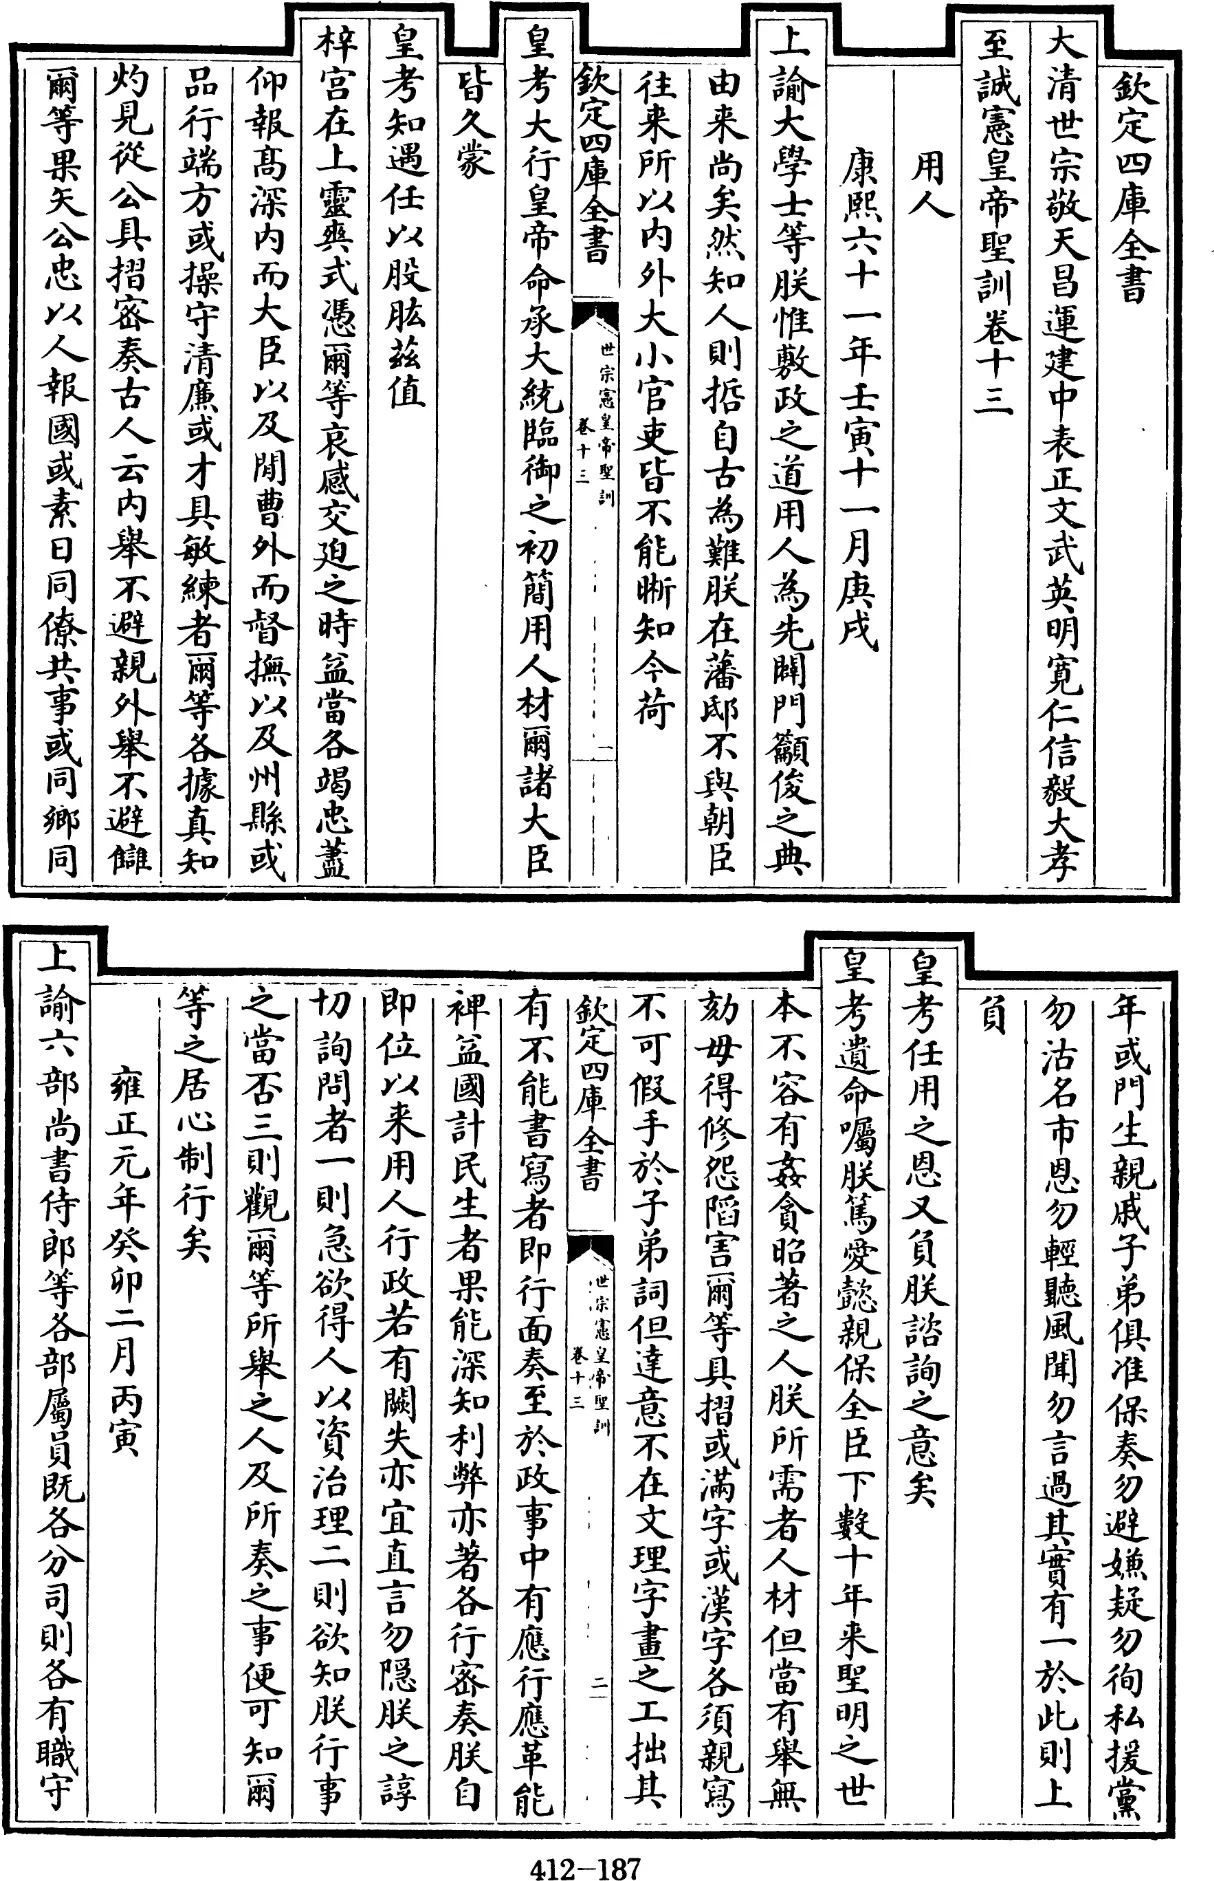 欽定四庫全書
大清世宗敬天昌運建中表正文武英明寛仁信毅大孝
至誠憲皇帝聖訓卷十三
用人
康熙六十一年壬寅十一月庚戌
上諭大學士等朕惟敷政之道用人為先闢門籲俊之典
由来尚矣然知人則哲自古為難朕在藩邸不與朝臣
往来所以内外大小官吏皆不能晰知今荷
欽定四庫全書
世宗憲皇帝聖訓
卷十三
一
皇考大行皇帝命承大統臨御之初簡用人材爾諸大臣
皆久蒙
皇考知遇任以股肱茲值
梓宫在上靈爽式憑爾等哀感交廹之時益當各竭忠藎
仰報髙深内而大臣以及閒曹外而督撫以及州縣或
品行端方或操守清廉或才具敏練者爾等各據真知
灼見從公具摺密奏古人云内舉不避親外舉不避讎
爾等果矢公忠以人報國或素日同僚共事或同鄉同
年或門生親戚子弟俱准保奏勿避嫌疑勿徇私援黨
勿沽名市恩勿輕聽風聞勿言過其實有一於此則上
負
皇考任用之恩又負朕諮詢之意矣
皇考遺命囑朕篤愛懿親保全臣下數十年来聖明之世
本不容有姦貪昭著之人朕所需者人材但當有舉無
劾毋得修怨陷害爾等具摺或滿字或漢字各須親寫
不可假手於子弟詞但達意不在文理字畫之工拙其
欽定四庫全書
世宗憲皇帝聖訓
卷十三
二
有不能書寫者即行面奏至於政事中有應行應革能
裨益國計民生者果能深知利弊亦著各行密奏朕自
即位以来用人行政若有闕失亦宜直言勿隠朕之諄
切詢問者一則急欲得人以資治理二則欲知朕行事
之當否三則觀爾等所舉之人及所奏之事便可知爾
等之居心制行矣
雍正元年癸卯二月丙寅
上諭六部尚書侍郎等各部屬員既各分司則各有職守
412-187